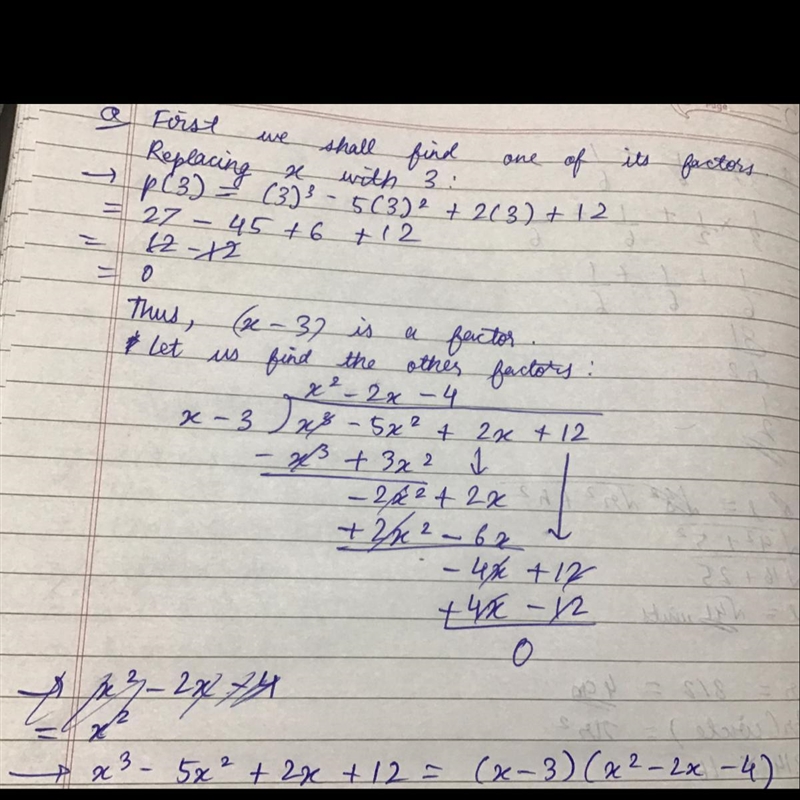 Q First we shall find one of its factors.
Replacing x with 3:
→ p(3) = (3)³ - 5(3)² + 2(3) + 12
= 27 - 45 + 6 + 12
= 12 - 12
= 0
Thus, (x - 3) is a factor.
Let us find the other factors:
x² - 2x - 4
x - 3 ) x³ - 5x² + 2x + 12
- x³ + 3x² ↓
- 2x² + 2x
+ 2x² - 6x ↓
- 4x + 12
+ 4x - 12
0
→ x² - 2x + 4
= x²
→ x³ - 5x² + 2x + 12 = (x - 3)(x² - 2x - 4)